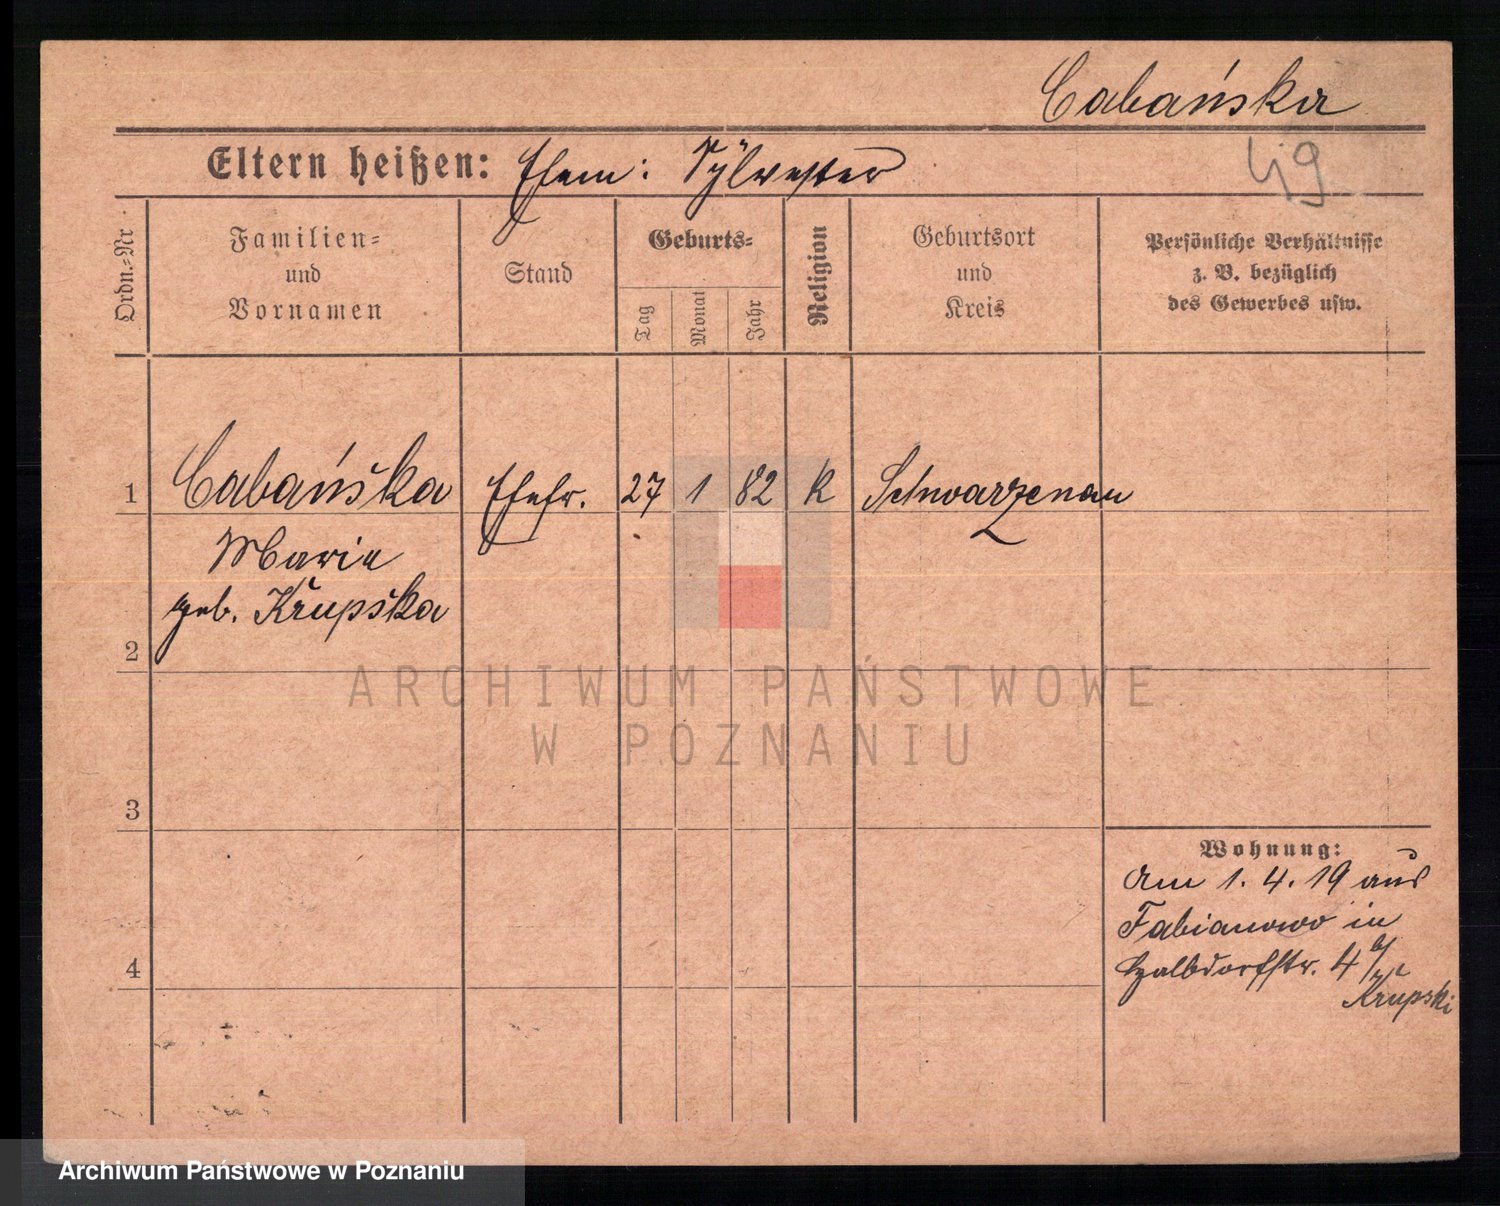 Cabańska
Eltern heißen: Ehem: Sylvester
49
Ordn.=Nr
Familien=
und
Vornamen
Stand
Geburts=
Tag
Monat
Jahr
Religion
Geburtsort
und
Kreis
Persönliche Verhältnisse
z. B. bezüglich
des Gewerbes usw.
1 Cabańska Ehefr. 27 1 82 K Schwarzenau
Marie
geb. Krupska
2
ARCHIWUM PAŃSTWOWE
W POZNANIU
3
Wohnung:
Am 1. 4. 19 aus
Fabianowo in
4
4 b/
Krupski
Archiwum Państwowe w Poznaniu